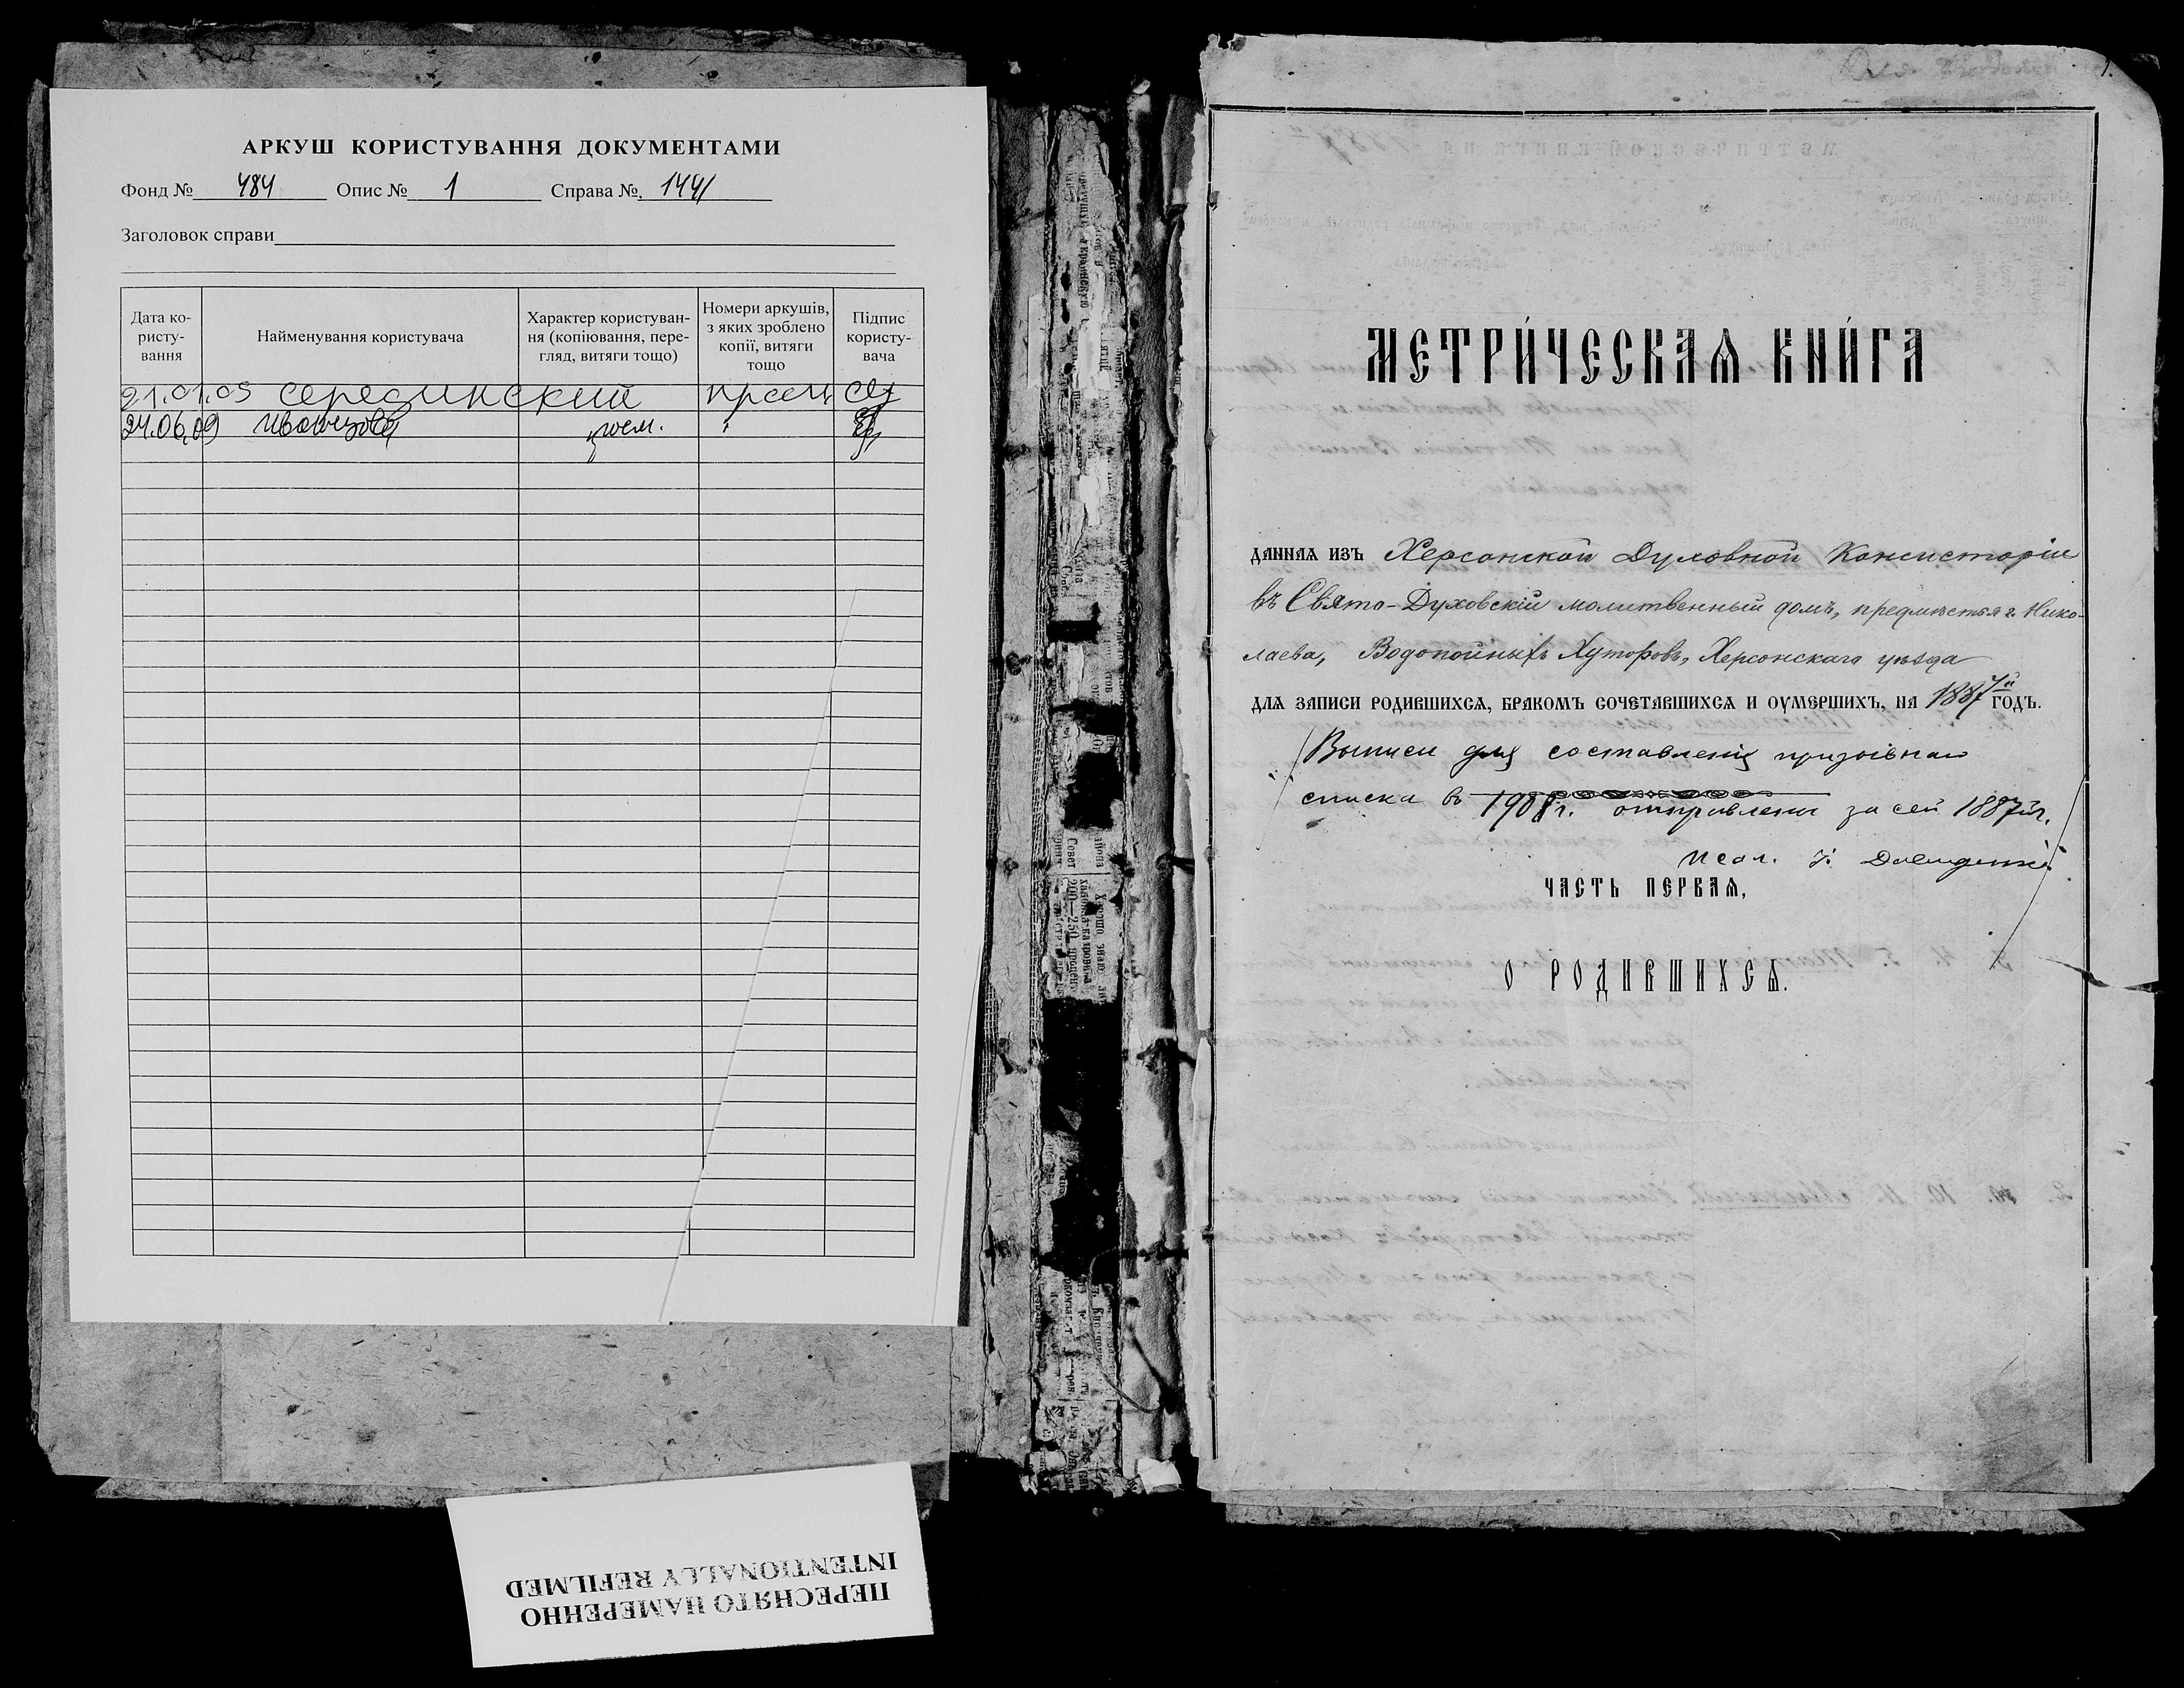 АРКУШ КОРИСТУВАННЯ ДОКУМЕНТАМИ
Фонд № 484 Опис № 1 Справа № 1441
Заголовок справи
Дата ко-
ристу-
вання
Найменування користувача
Характер користуван-
ня (копіювання, пере-
гляд, витяги тощо)
Номери аркушів,
з яких зроблено
копії, витяги
тощо
Підпис
користу-
вача
21.01.09 Серединский
24.06.09
ПЕРЕСНЯТО НАМЕРЕННО
INTENTIONALLY REFILMED
1.
МЕТРИ́ЧЕСКАѦ КНИ́ГА
ДАННАѦ ИЗЪ Херсонской Духовной Консисторіи
въ Свято-Духовскій молитвенный домъ, предмѣстья г. Нико-
лаева, Водопойныхъ Хуторовъ, Херсонскаго уѣзда
ДЛѦ ЗАПИСИ РОДИВШИХСѦ, БРАКОМЪ СОЧЕТАВШИХСѦ И ОУМЕРШИХЪ, НА 1887й ГОДЪ.
Выписи для составленія призывнаго
списка въ 1908 г. отправлены за сей 1887й г.
Псал. Давиденко
ЧАСТЬ ПЕРВАѦ,
О РОДИВШИХСѦ.